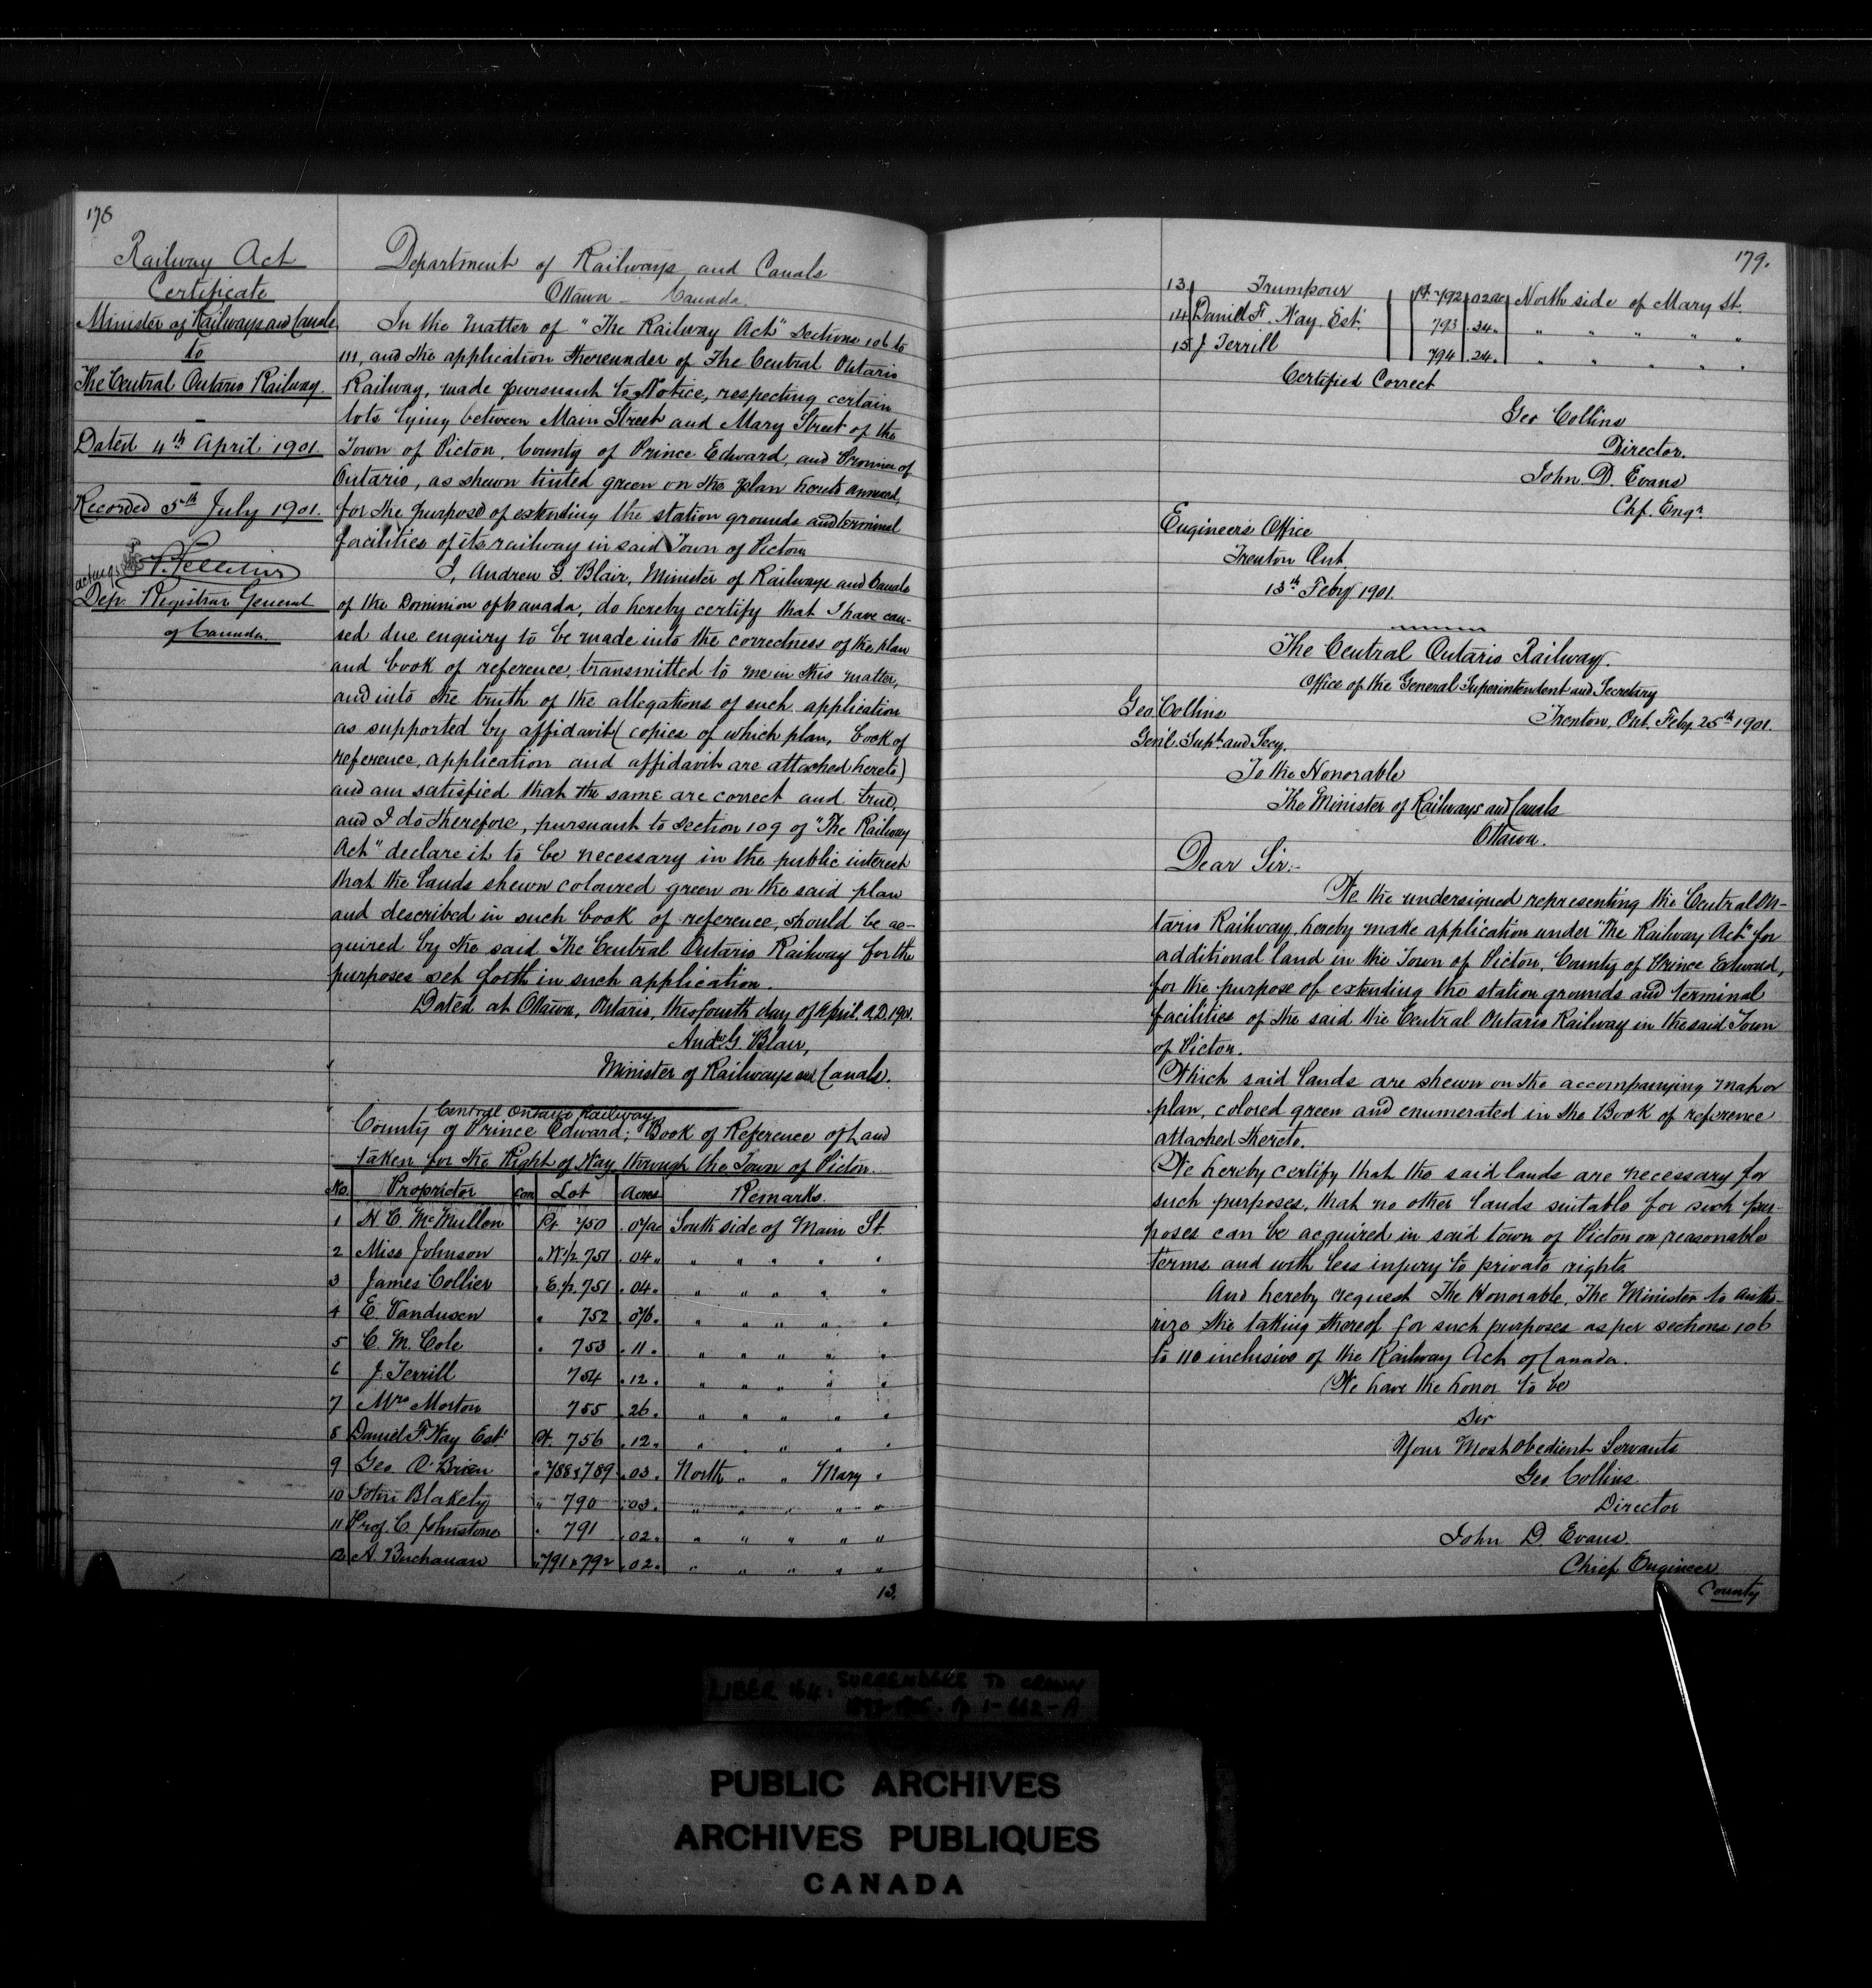 178
Railway Act
Certificate
Minister of Railways and Canals
to
The Central Ontario Railway.
Dated 4th April 1901.
Recorded 5th July 1901.
acting
Dep. Registrar General
of Canada.
Department of Railways and Canals
Ottawa - Canada.
In the matter of "The Railway Act" Sections 106 to
111, and the application thereunder of The Central Ontario
Railway, made pursuant to Notice, respecting certain
lots lying between Main Street and Mary Street of the
Town of Picton, County of Prince Edward, and Province of
Ontario, as shewn tinted green on the plan hereto annexed,
for the purpose of extending the station grounds and terminal
facilities of its railway in said Town of Picton
I, Andrew G. Blair, Minister of Railways and Canals
of the Dominion of Canada, do hereby certify that I have cau-
sed due enquiry to be made into the correctness of the plan
and book of reference, transmitted to me in this matter,
and into the truth of the allegations of such application
as supported by affidavit (copies of which plan, book of
reference, application and affidavit are attached hereto)
and am satisfied that the same are correct and true,
and I do therefore, pursuant to section 109 of "The Railway
Act" declare it to be necessary in the public interest
that the lands shewn coloured green on the said plan
and described in such book of reference, should be ac-
quired by the said The Central Ontario Railway for the
purposes set forth in such application.
Dated at Ottawa, Ontario, this fourth day of April. A.D. 1901.
Andw. G. Blair,
Minister of Railways and Canals.
Central Ontario Railway
County of Prince Edward; Book of Reference of Land
taken for the Right of Way through the Town of Picton.
No. Proprietor Con Lot Acres Remarks.
1 H. C. McMullen Pt. 750 .07ac South side of Main St.
2 Miss Johnson " W.½ 751 .04 " " " " " "
3 James Collier " E.½ 751 .04 " " " " " "
4 E. Vandusen " 752 .076 " " " " "
5 C. M. Cole " 753 .11 " " " " " "
6 J. Terrill 754 .12 " " " " " "
7 Mrs Morton 755 .26 " " " " " "
8 Daniel F. Way Est. Pt. 756 .12 " " " " " "
9 Geo. O'Brien " 788 & 789 .03 " North " " Mary "
10 John Blakely " 790 .03 " " " " " "
11 Prof. C. Johnstone " 791 .02 " " " " " "
12 A. Buchanan " 791 & 792 .02 " " " " " "
13.
179.
13 Trumpour Pt. 792 .02ac North side of Mary St.
14 Daniel F. Way Est. 793 .24 " " " " " "
15 J Terrill 794 .24 " " " " " "
Certified Correct
Geo Collins
Director.
John D. Evans
Chf. Engr.
Engineer's Office
Trenton Ont
13th Feby 1901.
The Central Ontario Railway.
Office of the General Superintendent and Secretary
Geo. Collins
Trenton, Ont. Feby. 25th 1901.
Gen'l. Supt. and Secy.
To the Honorable
The Minister of Railways and Canals
Ottawa.
Dear Sir:-
We the undersigned representing the Central On-
tario Railway, hereby make application under "The Railway Act" for
additional land in the Town of Picton, County of Prince Edward,
for the purpose of extending the station grounds and terminal
facilities of the said the Central Ontario Railway in the said Town
of Picton.
Which said lands are shewn on the accompanying map or
plan, colored green and enumerated in the Book of reference
attached thereto.
We hereby certify that the said lands are necessary for
such purposes, that no other lands suitable for such pur-
poses can be acquired in said town of Picton on reasonable
terms and with less injury to private rights
And hereby request The Honorable, The Minister to autho-
rize the taking thereof for such purposes as per sections 106
to 110 inclusive of the Railway Act of Canada.
We have the honor to be
Sir
Your Most Obedient Servants
Geo Collins
Director
John D. Evans.
Chief Engineer
County
LIBER 164: SURRENDERS TO CROWN
PUBLIC ARCHIVES
ARCHIVES PUBLIQUES
CANADA